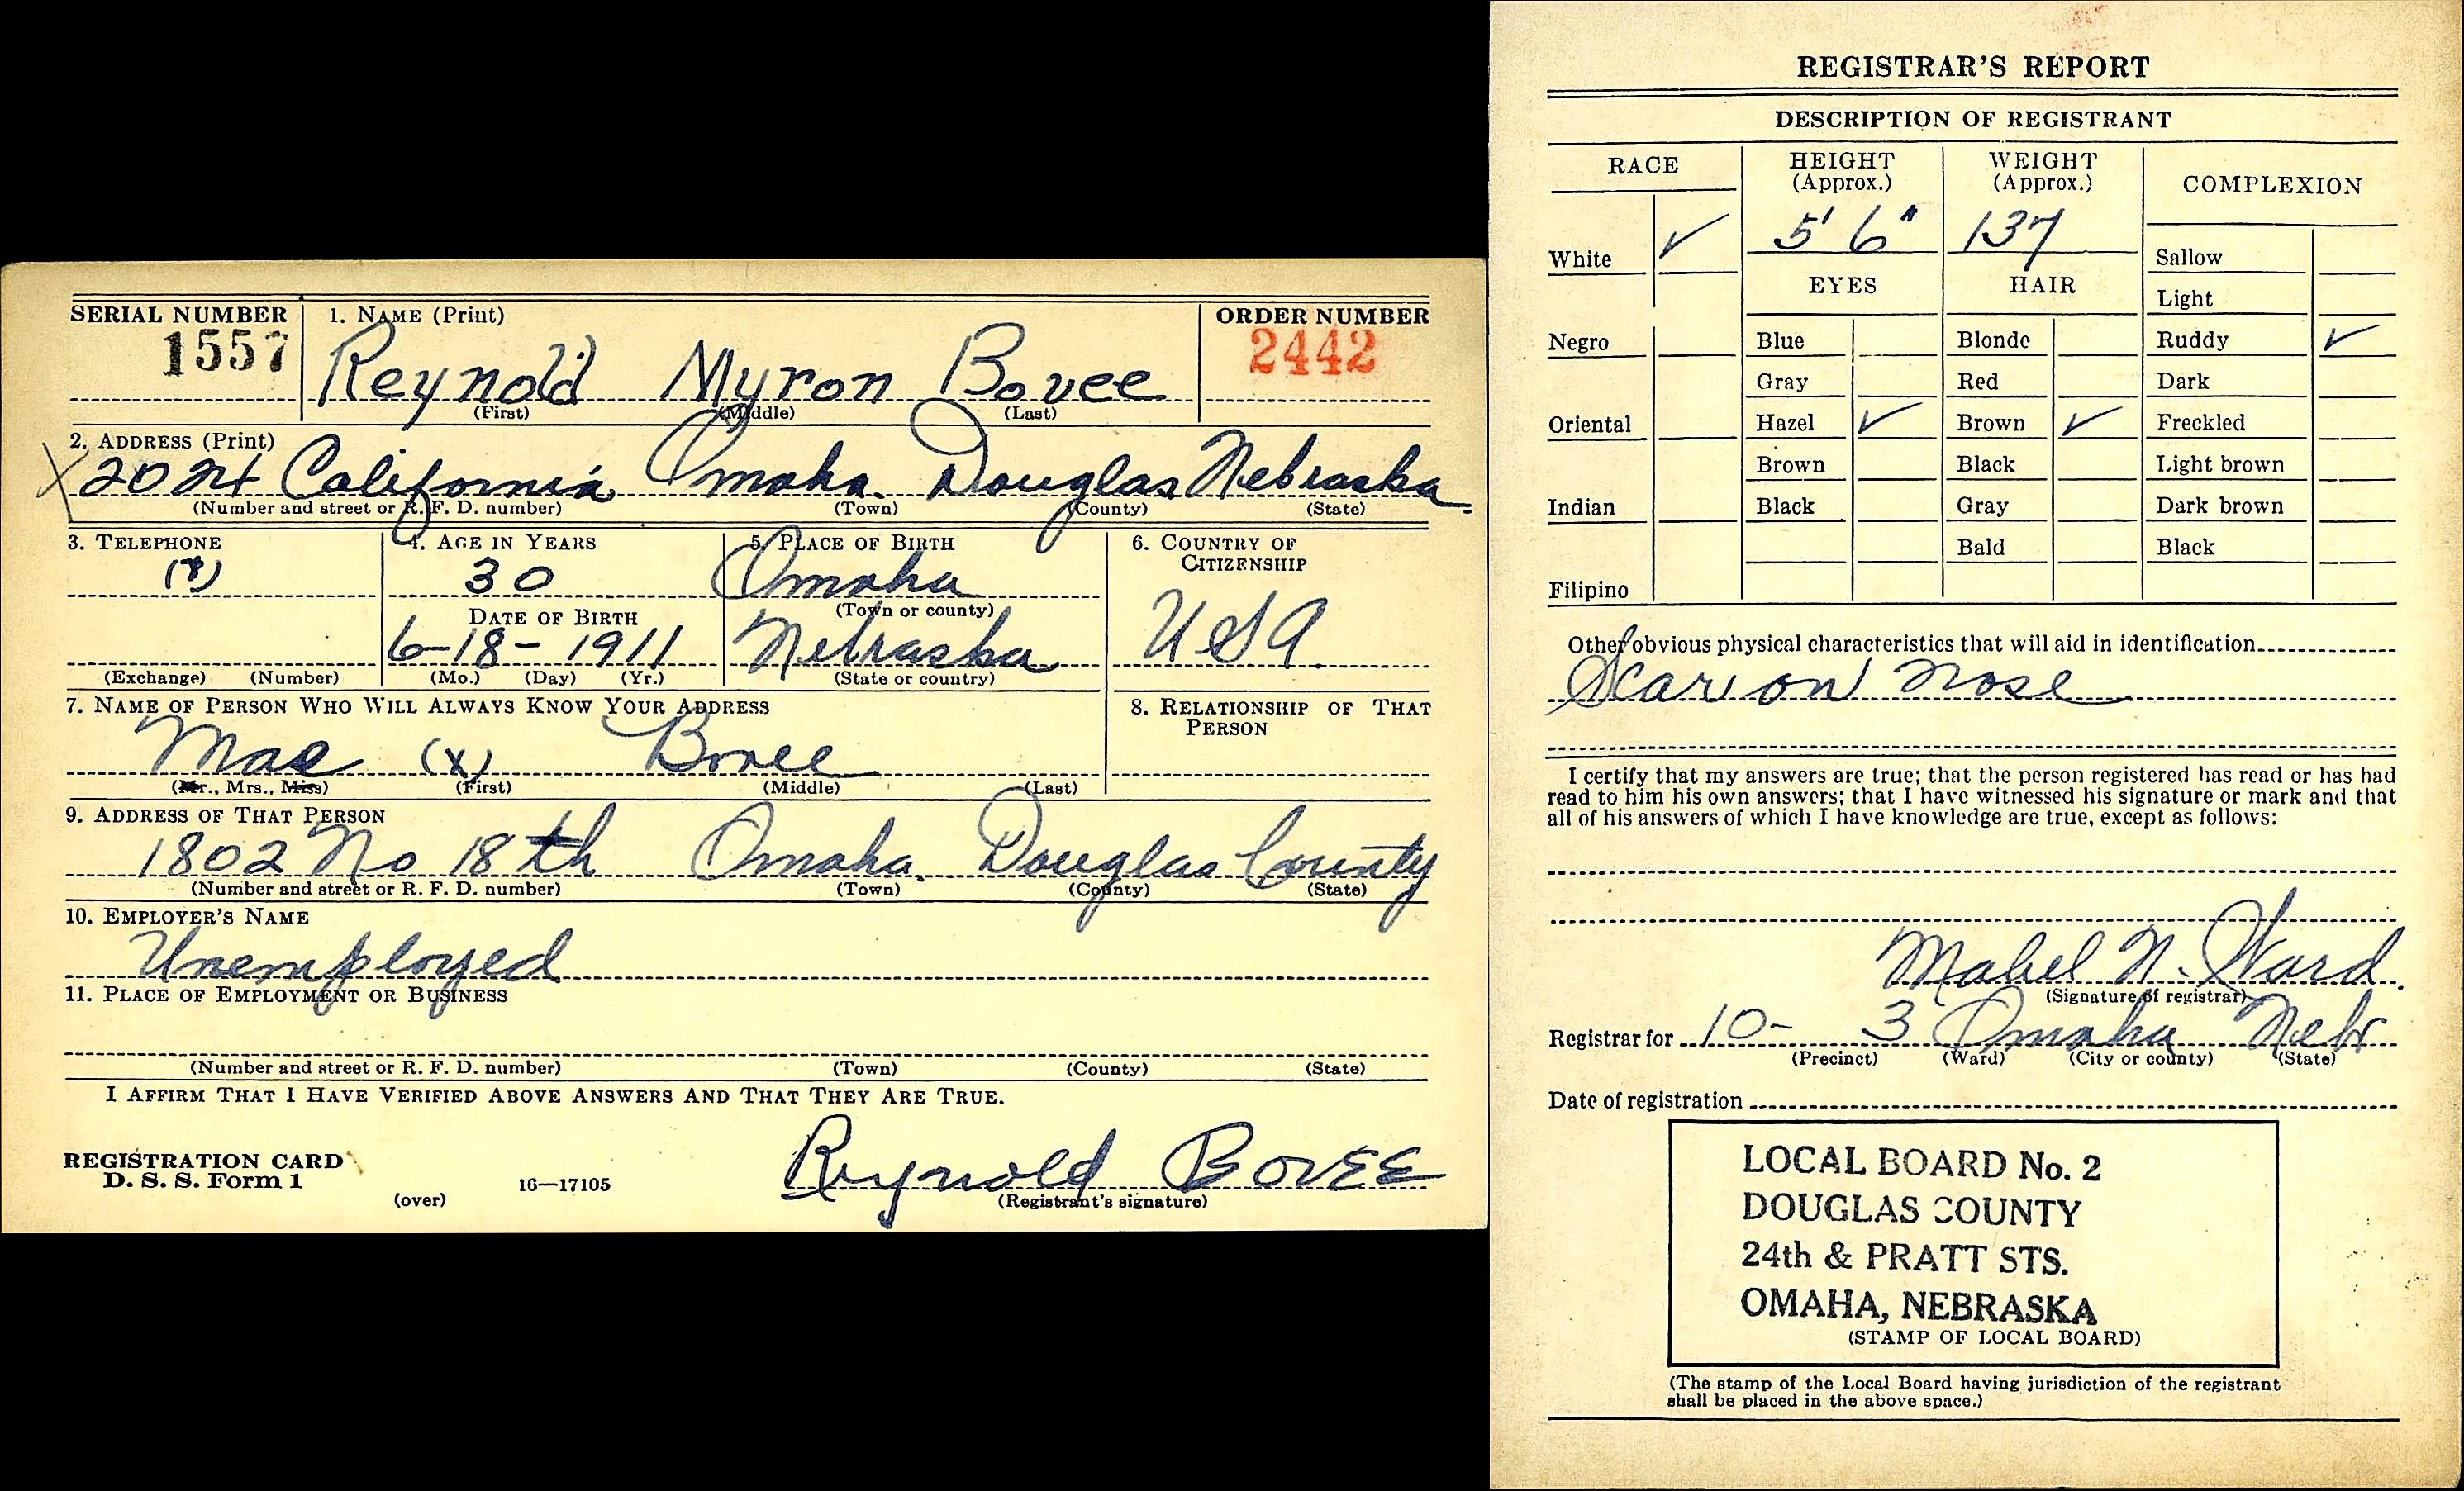 SERIAL NUMBER 1. NAME (Print) ORDER NUMBER
1557 Reynold Myron Bovee 2442
(First) (Middle) (Last)
2. ADDRESS (Print)
X 2024 California Omaha. Douglas Nebraska.
(Number and street or R. F. D. number) (Town) (County) (State)
3. TELEPHONE 4. AGE IN YEARS 5. PLACE OF BIRTH 6. COUNTRY OF CITIZENSHIP
(x) 30 Omaha
DATE OF BIRTH (Town or county)
6-18-1911 Nebraska USA.
(Exchange) (Number) (Mo.) (Day) (Yr.) (State or country)
7. NAME OF PERSON WHO WILL ALWAYS KNOW YOUR ADDRESS 8. RELATIONSHIP OF THAT PERSON
Mae (x) Bovee
(Mr., Mrs., Miss) (First) (Middle) (Last)
9. ADDRESS OF THAT PERSON
1802 No 18th Omaha. Douglas County
(Number and street or R. F. D. number) (Town) (County) (State)
10. EMPLOYER'S NAME
Unemployed
11. PLACE OF EMPLOYMENT OR BUSINESS
(Number and street or R. F. D. number) (Town) (County) (State)
I AFFIRM THAT I HAVE VERIFIED ABOVE ANSWERS AND THAT THEY ARE TRUE.
REGISTRATION CARD
D. S. S. Form 1 (over) 16—17105
Reynold Bovee
(Registrant's signature)
REGISTRAR'S REPORT
DESCRIPTION OF REGISTRANT
RACE HEIGHT (Approx.) WEIGHT (Approx.) COMPLEXION
White ✓ 5' 6" 137 Sallow
EYES HAIR Light
Negro Blue Blonde Ruddy ✓
Gray Red Dark
Oriental Hazel ✓ Brown ✓ Freckled
Brown Black Light brown
Indian Black Gray Dark brown
Bald Black
Filipino
Other obvious physical characteristics that will aid in identification
Scar on nose
I certify that my answers are true; that the person registered has read or has had
read to him his own answers; that I have witnessed his signature or mark and that
all of his answers of which I have knowledge are true, except as follows:
Mabel N. Ward.
(Signature of registrar)
Registrar for 10- 3 Omaha Nebr
(Precinct) (Ward) (City or county) (State)
Date of registration
LOCAL BOARD No. 2
DOUGLAS COUNTY
24th & PRATT STS.
OMAHA, NEBRASKA
(STAMP OF LOCAL BOARD)
(The stamp of the Local Board having jurisdiction of the registrant
shall be placed in the above space.)